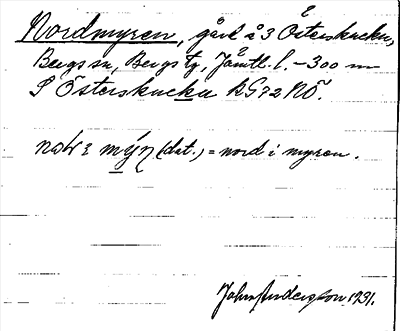 Nordmyren, gård å 3 Österskucku,
Bergs sn, Bergs tg, Jämtl. l. – 300 m
S Österskucku bl. 72 NÖ.
mýn (dat.) = nord i myren.
John Andersson 1931.